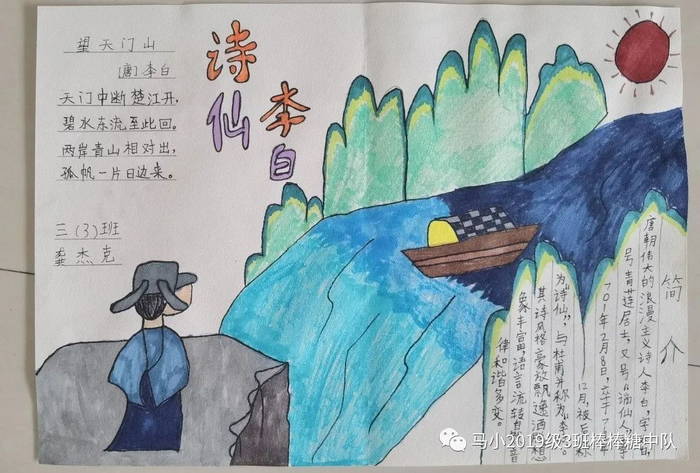 望天门山
[唐]李白
天门中断楚江开,
碧水东流至此回。
两岸青山相对出,
孤帆一片日边来。
三(3)班
龚杰克
诗仙
李白
简介
唐朝伟大的浪漫主义诗人李白,字
号青莲居士,又号“谪仙人”
701年2月8日,
12月,被后
为“诗仙”,与杜甫并称为“李
其诗风格豪放飘逸洒
象丰富,语言流转自
律和谐多变。
马小2019级3班棒棒糖中队